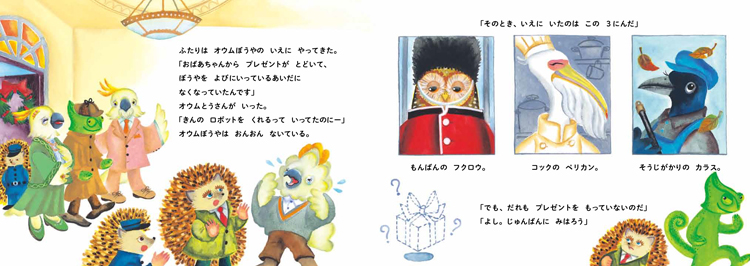 ふたりは オウムぼうやの いえに やってきた。
「おばあちゃんから プレゼントが とどいて、
ぼうやを よびにいっているあいだに
なくなっていたんです」
オウムとうさんが いった。
「きんの ロボットを くれるって いってたのにー」
オウムぼうやは おんおん ないている。
「そのとき、いえに いたのは この 3にんだ」
もんばんの フクロウ。
コックの ペリカン。
そうじがかりの カラス。
?
?
?
「でも、だれも プレゼントを もっていないのだ」
「よし。じゅんばんに みはろう」